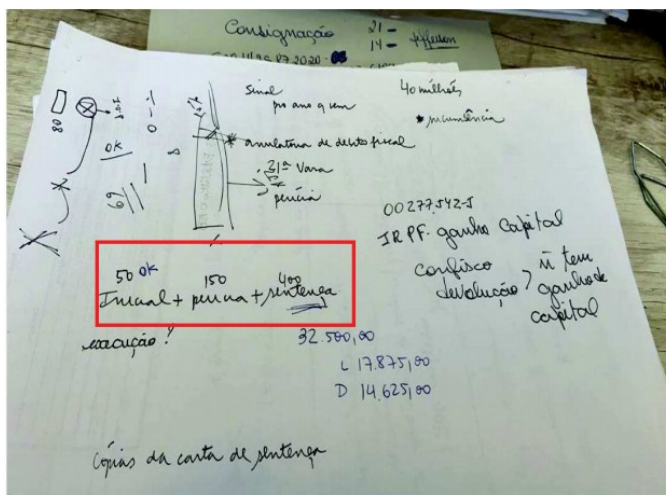 Consignação 21 -
14 - Jefferson
sinal
pro ano q vem
40 milhões
* sucumbência
* anulatória de débito fiscal
21ª Vara
perícia
OK
69
80
00277.542-5
IRPF. ganho capital
confisco
devolução? ñ tem
ganho de
capital
50 OK 150 400
Inicial + perícia + sentença
execução?
32.500,00
L 17.875,00
D 14.625,00
cópias da carta de sentença